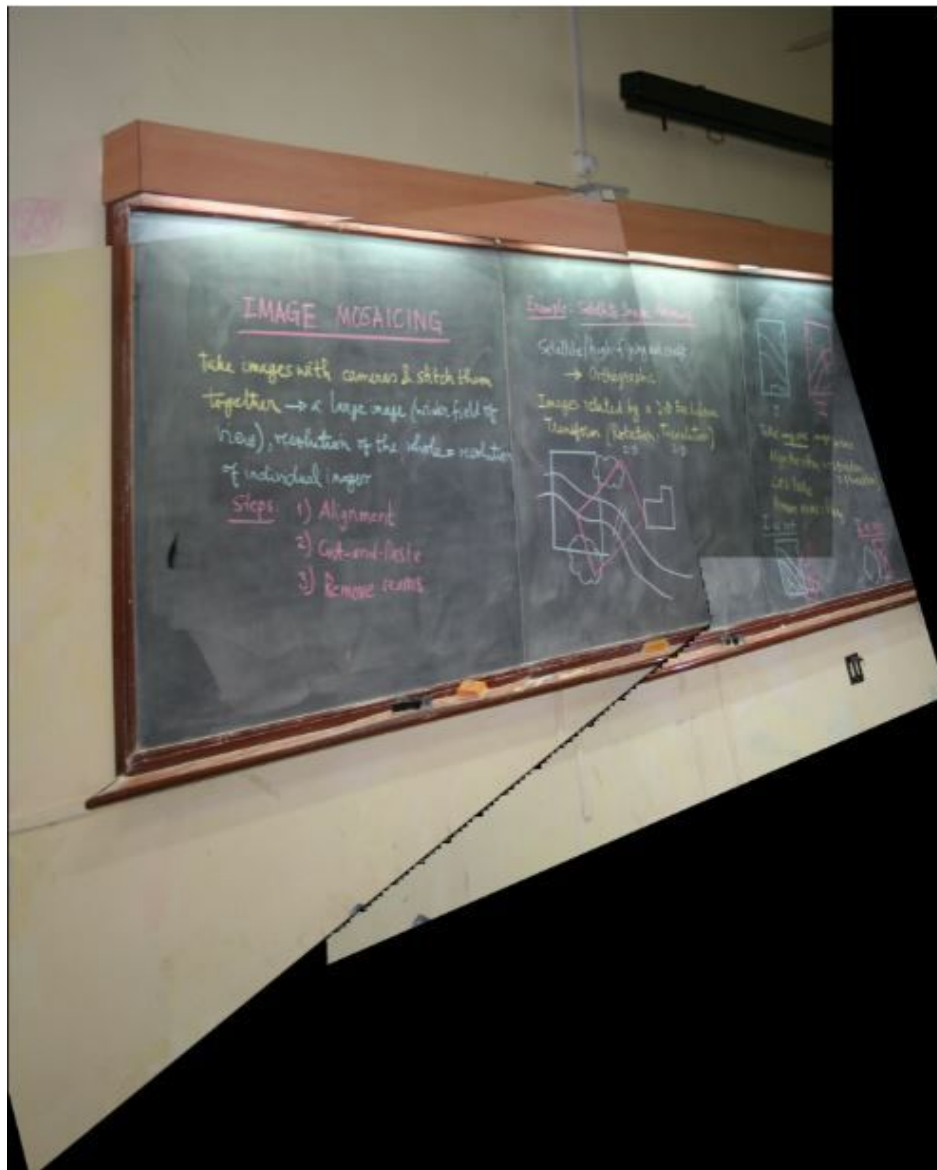 IMAGE MOSAICING
Take images with cameras & stitch them
together → a large image (wider field of
view), resolution of the whole = resolution
of individual images
Steps: 1) Alignment
2) Cut-and-Paste
3) Remove seams
Example: Satellite Image
Satellite/high-flying aircraft
→ Orthographic
Images related by a 2-D Euclidean
Transform (Rotation, Translation)
2-D 2-D
Take